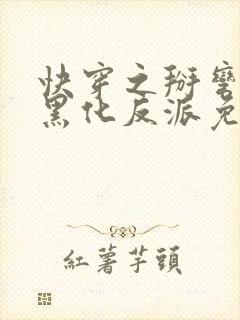 快穿之掰彎
黑化反派免
紅薯芋頭